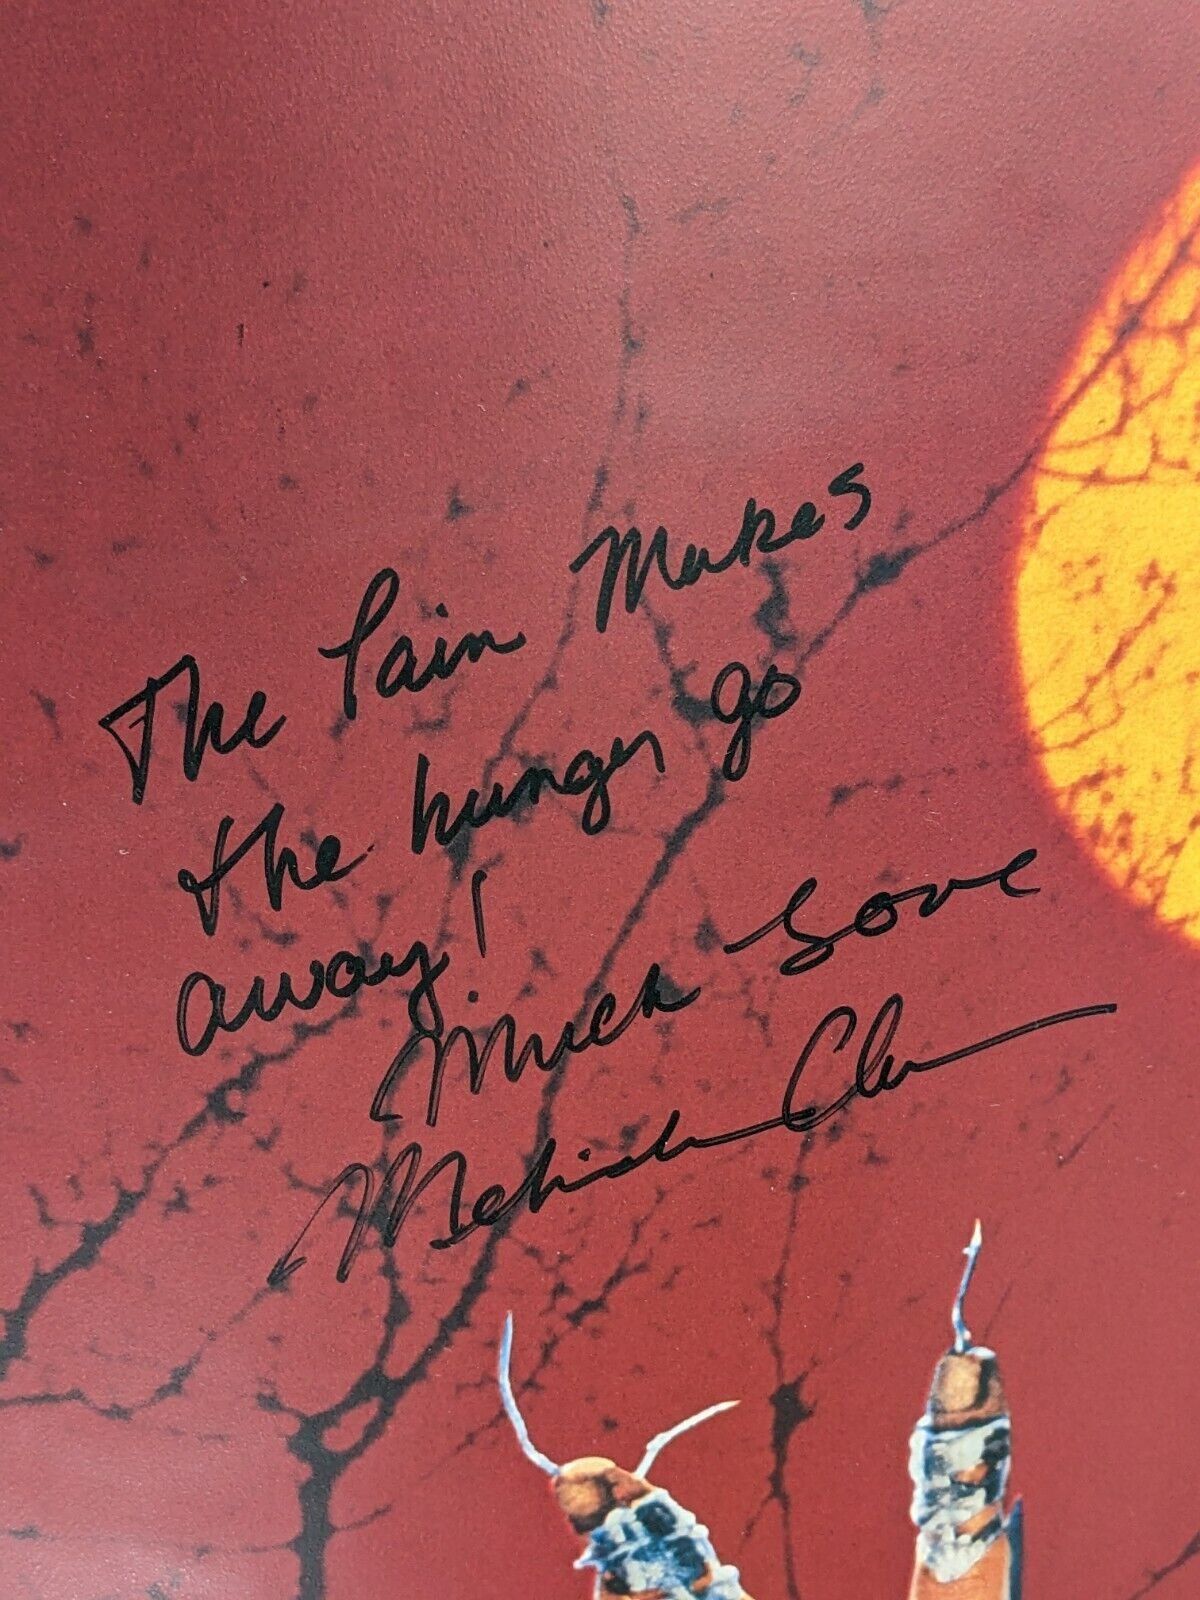 The Pain Makes
the hunger go
away!
Much Love
Melinda Clarke